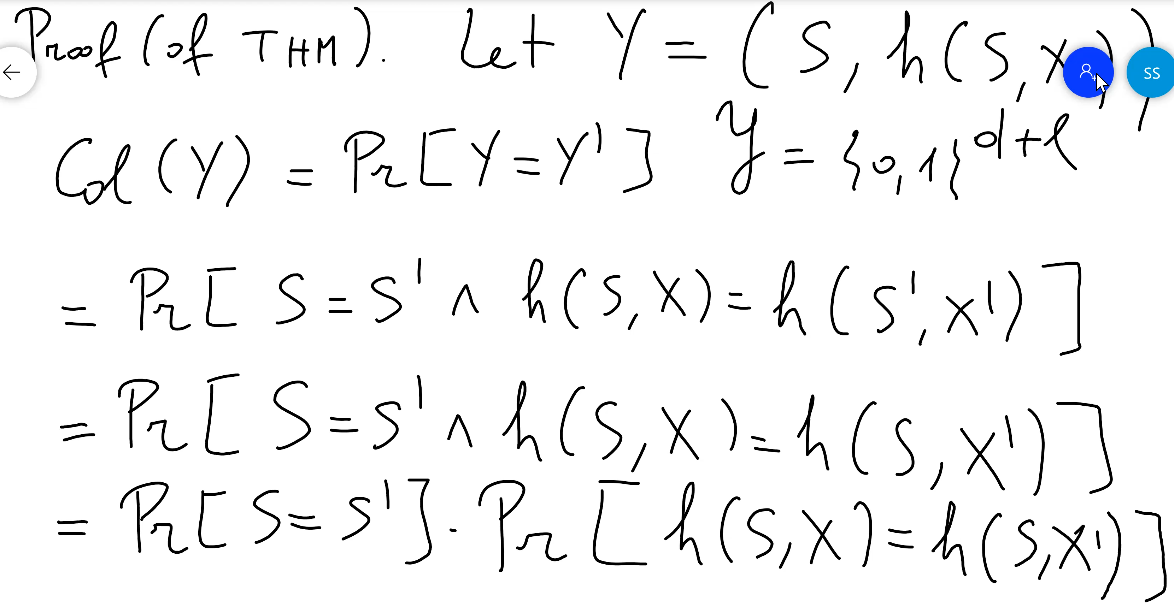 Proof (of THM). Let Y = (S, h(S, X))
SS
Col(Y) = Pr[Y=Y'] 𝒴 = {0,1}^{d+ℓ}
= Pr[S=S' ∧ h(S,X)=h(S',X')]
= Pr[S=S' ∧ h(S,X)=h(S,X')]
= Pr[S=S']· Pr[h(S,X)=h(S,X')]